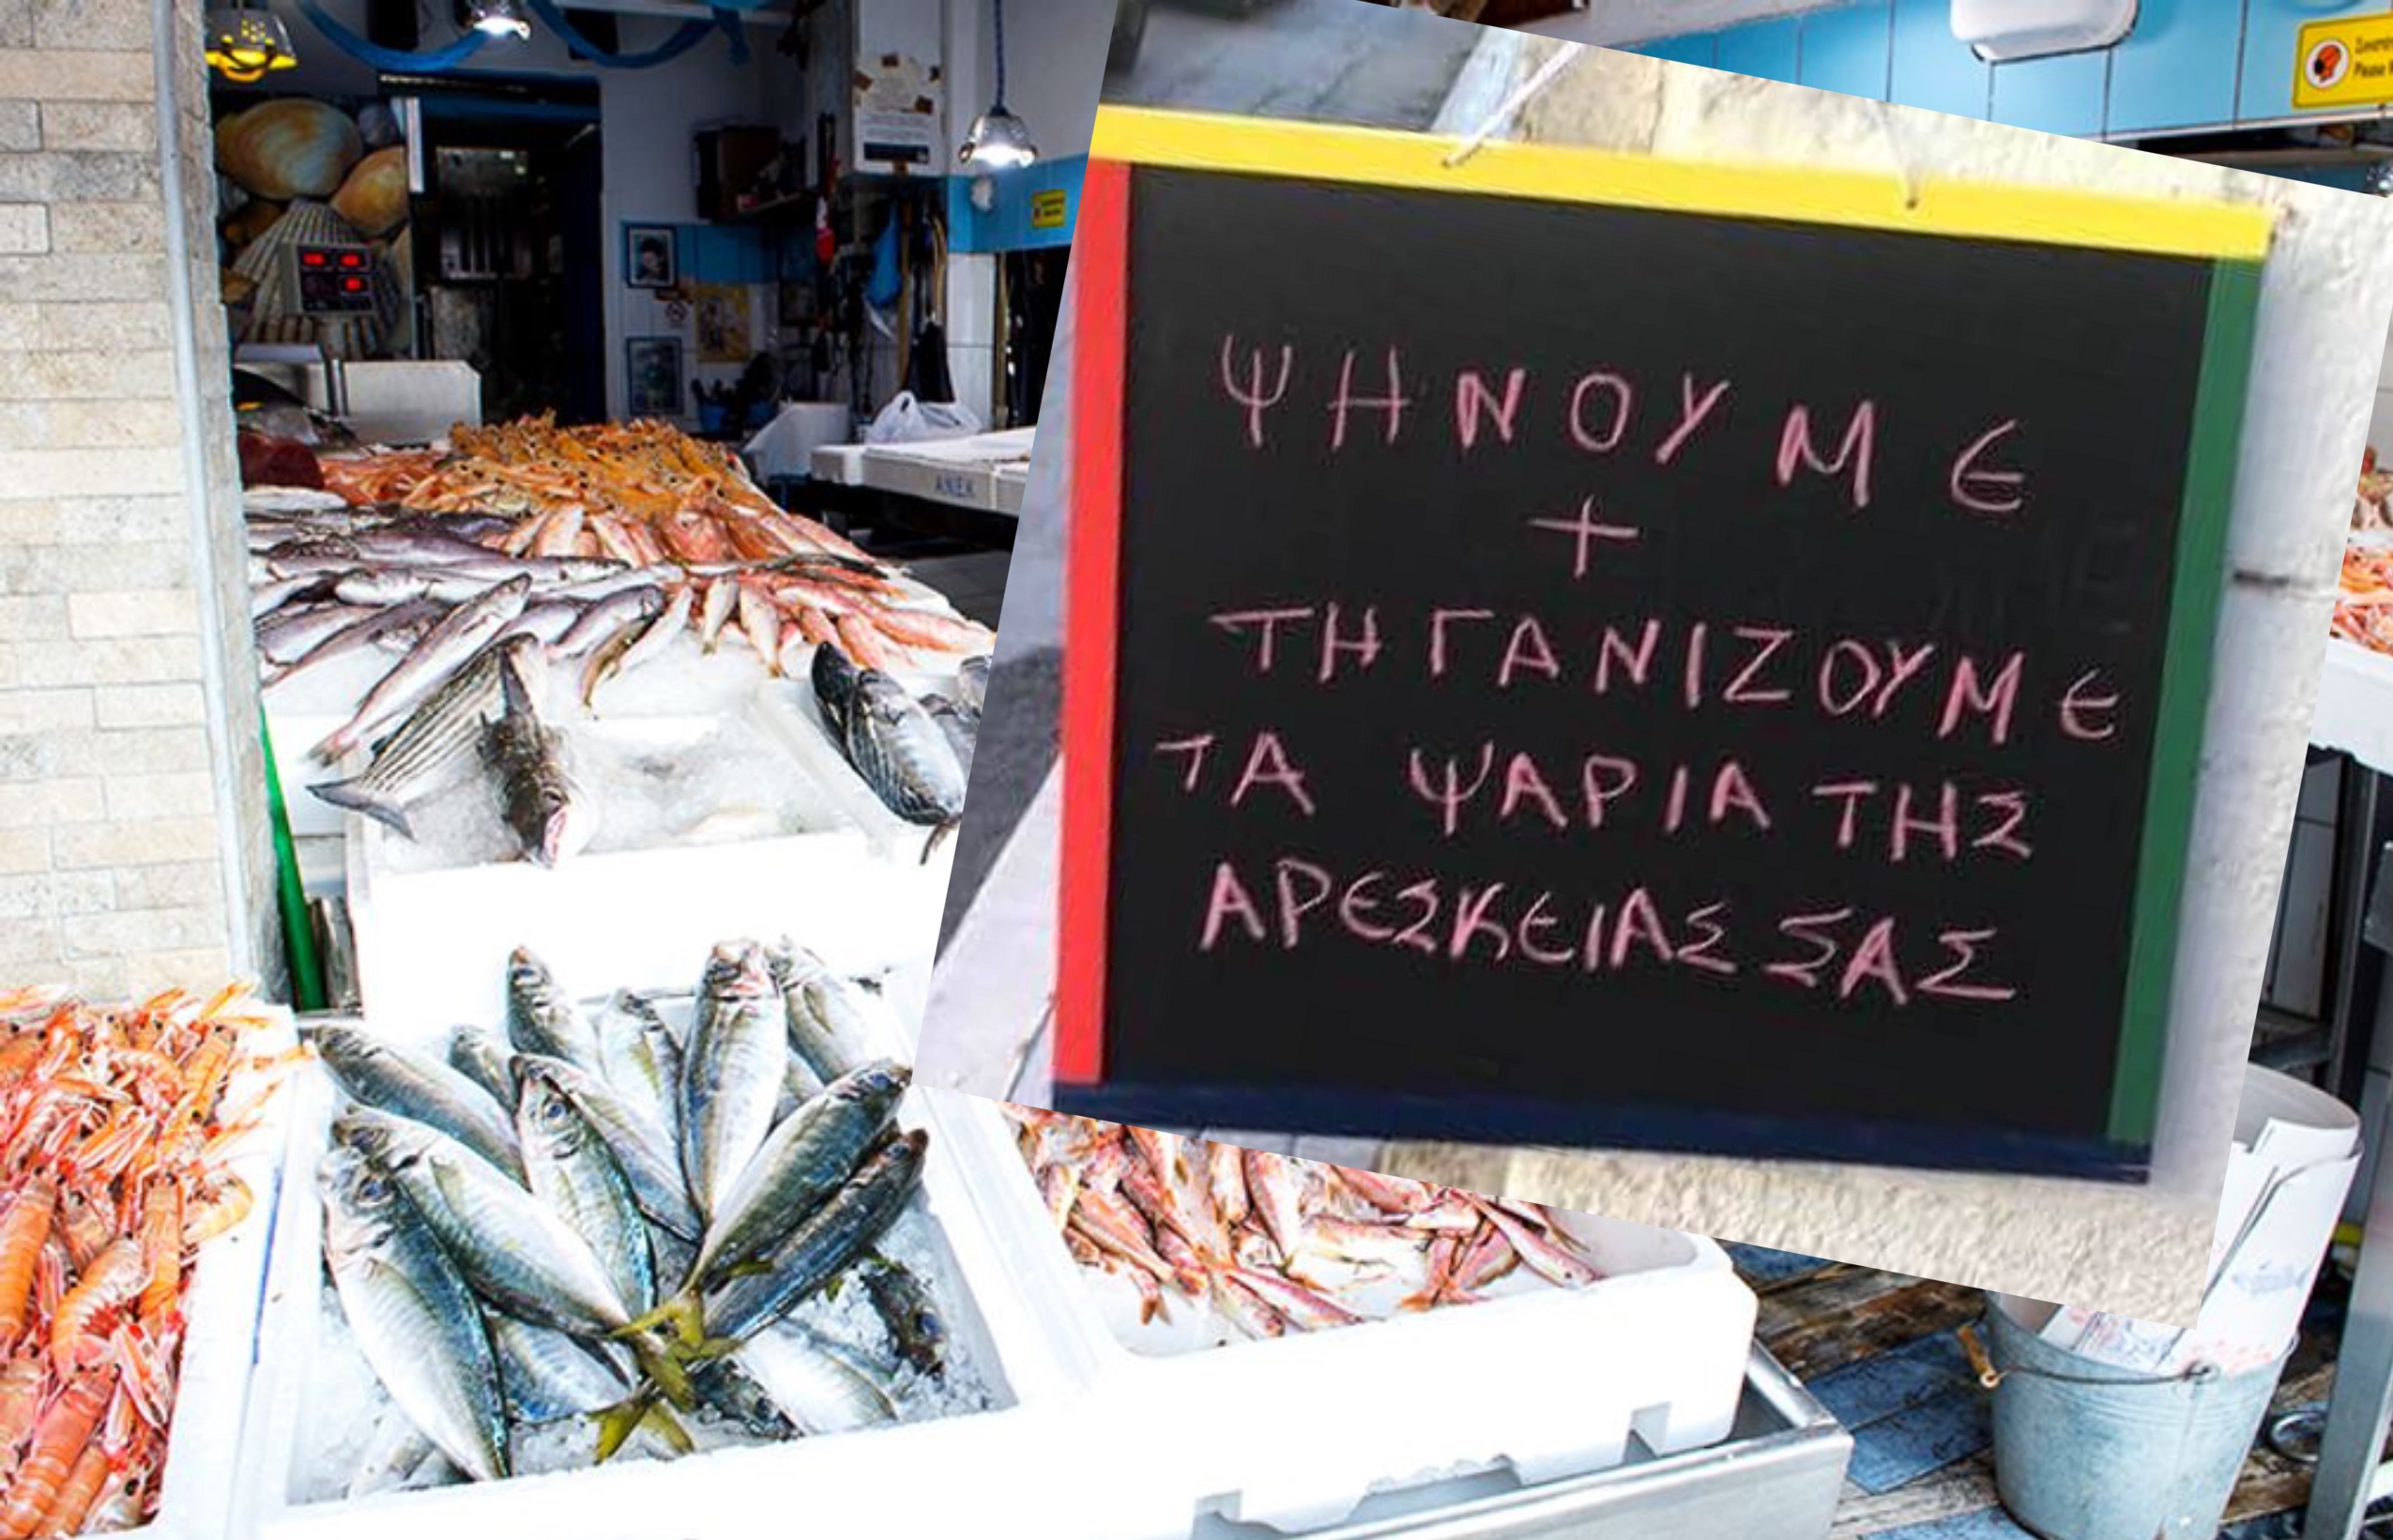 ΨΗΝΟΥΜΕ
+
ΤΗΓΑΝΙΖΟΥΜΕ
ΤΑ ΨΑΡΙΑ ΤΗΣ
ΑΡΕΣΚΕΙΑΣ ΣΑΣ
ΑΝΕΚ